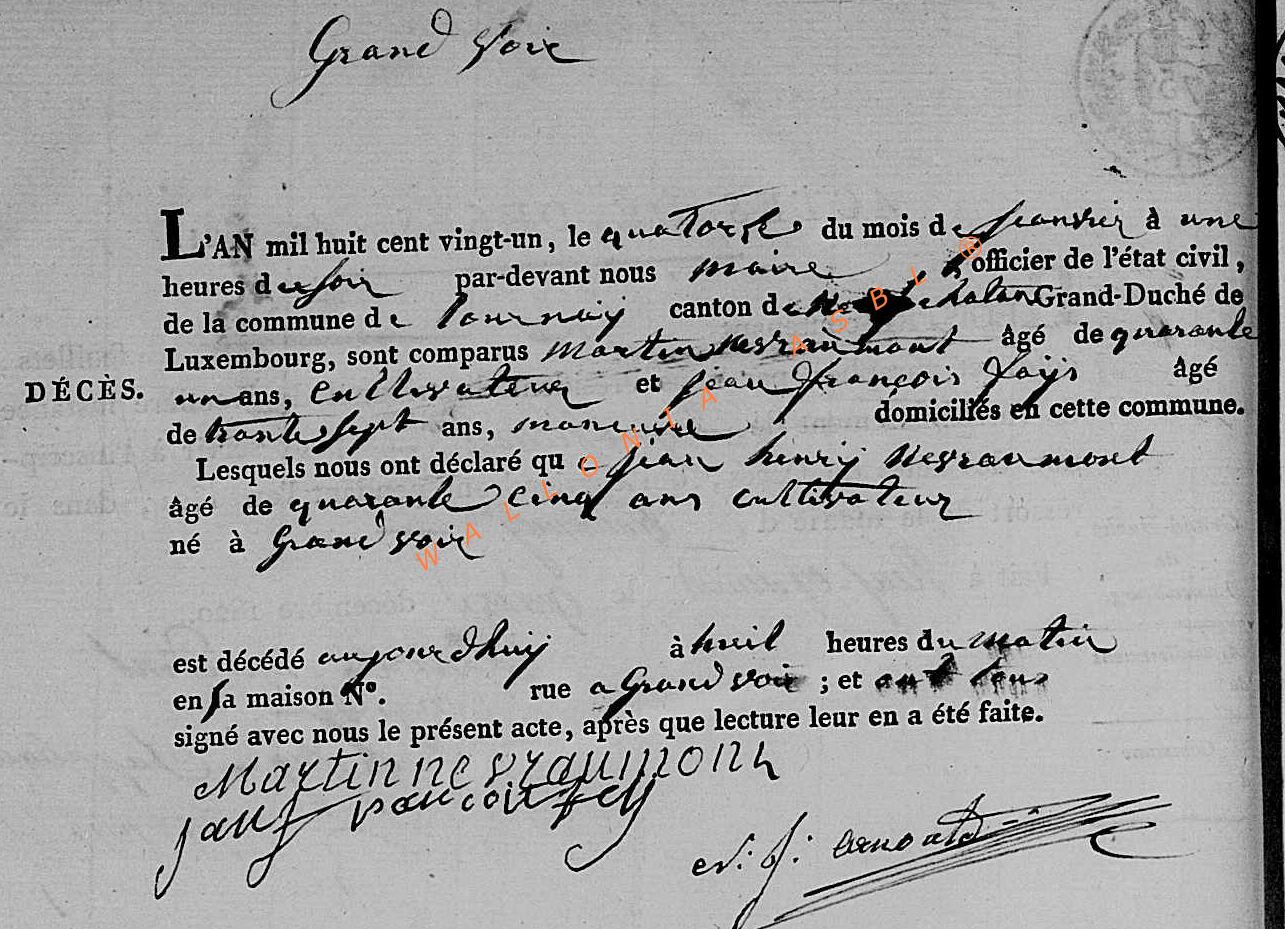 Grand Voir
L'AN mil huit cent vingt-un, le quatorse du mois de janvier à une
heures du soir par-devant nous maire officier de l'état civil,
de la commune de tournay canton de Grand-Duché de
Luxembourg, sont comparus Martin Nevraumont âgé de quarante
DÉCÈS.
un ans, cultivateur et jean françois fays âgé
de trante sept ans, domiciliés en cette commune.
Lesquels nous ont déclaré que jean henry Nevraumont
âgé de quarante cinq ans cultivateur
né à Grand voir
est décédé aujourdhuy à huit heures du matin
en sa maison N°. rue a Grand voir ; et ont tous
signé avec nous le présent acte, après que lecture leur en a été faite.
Martin nevraumont
jan francoit fays
arnould
WALLONIA ASBL ®